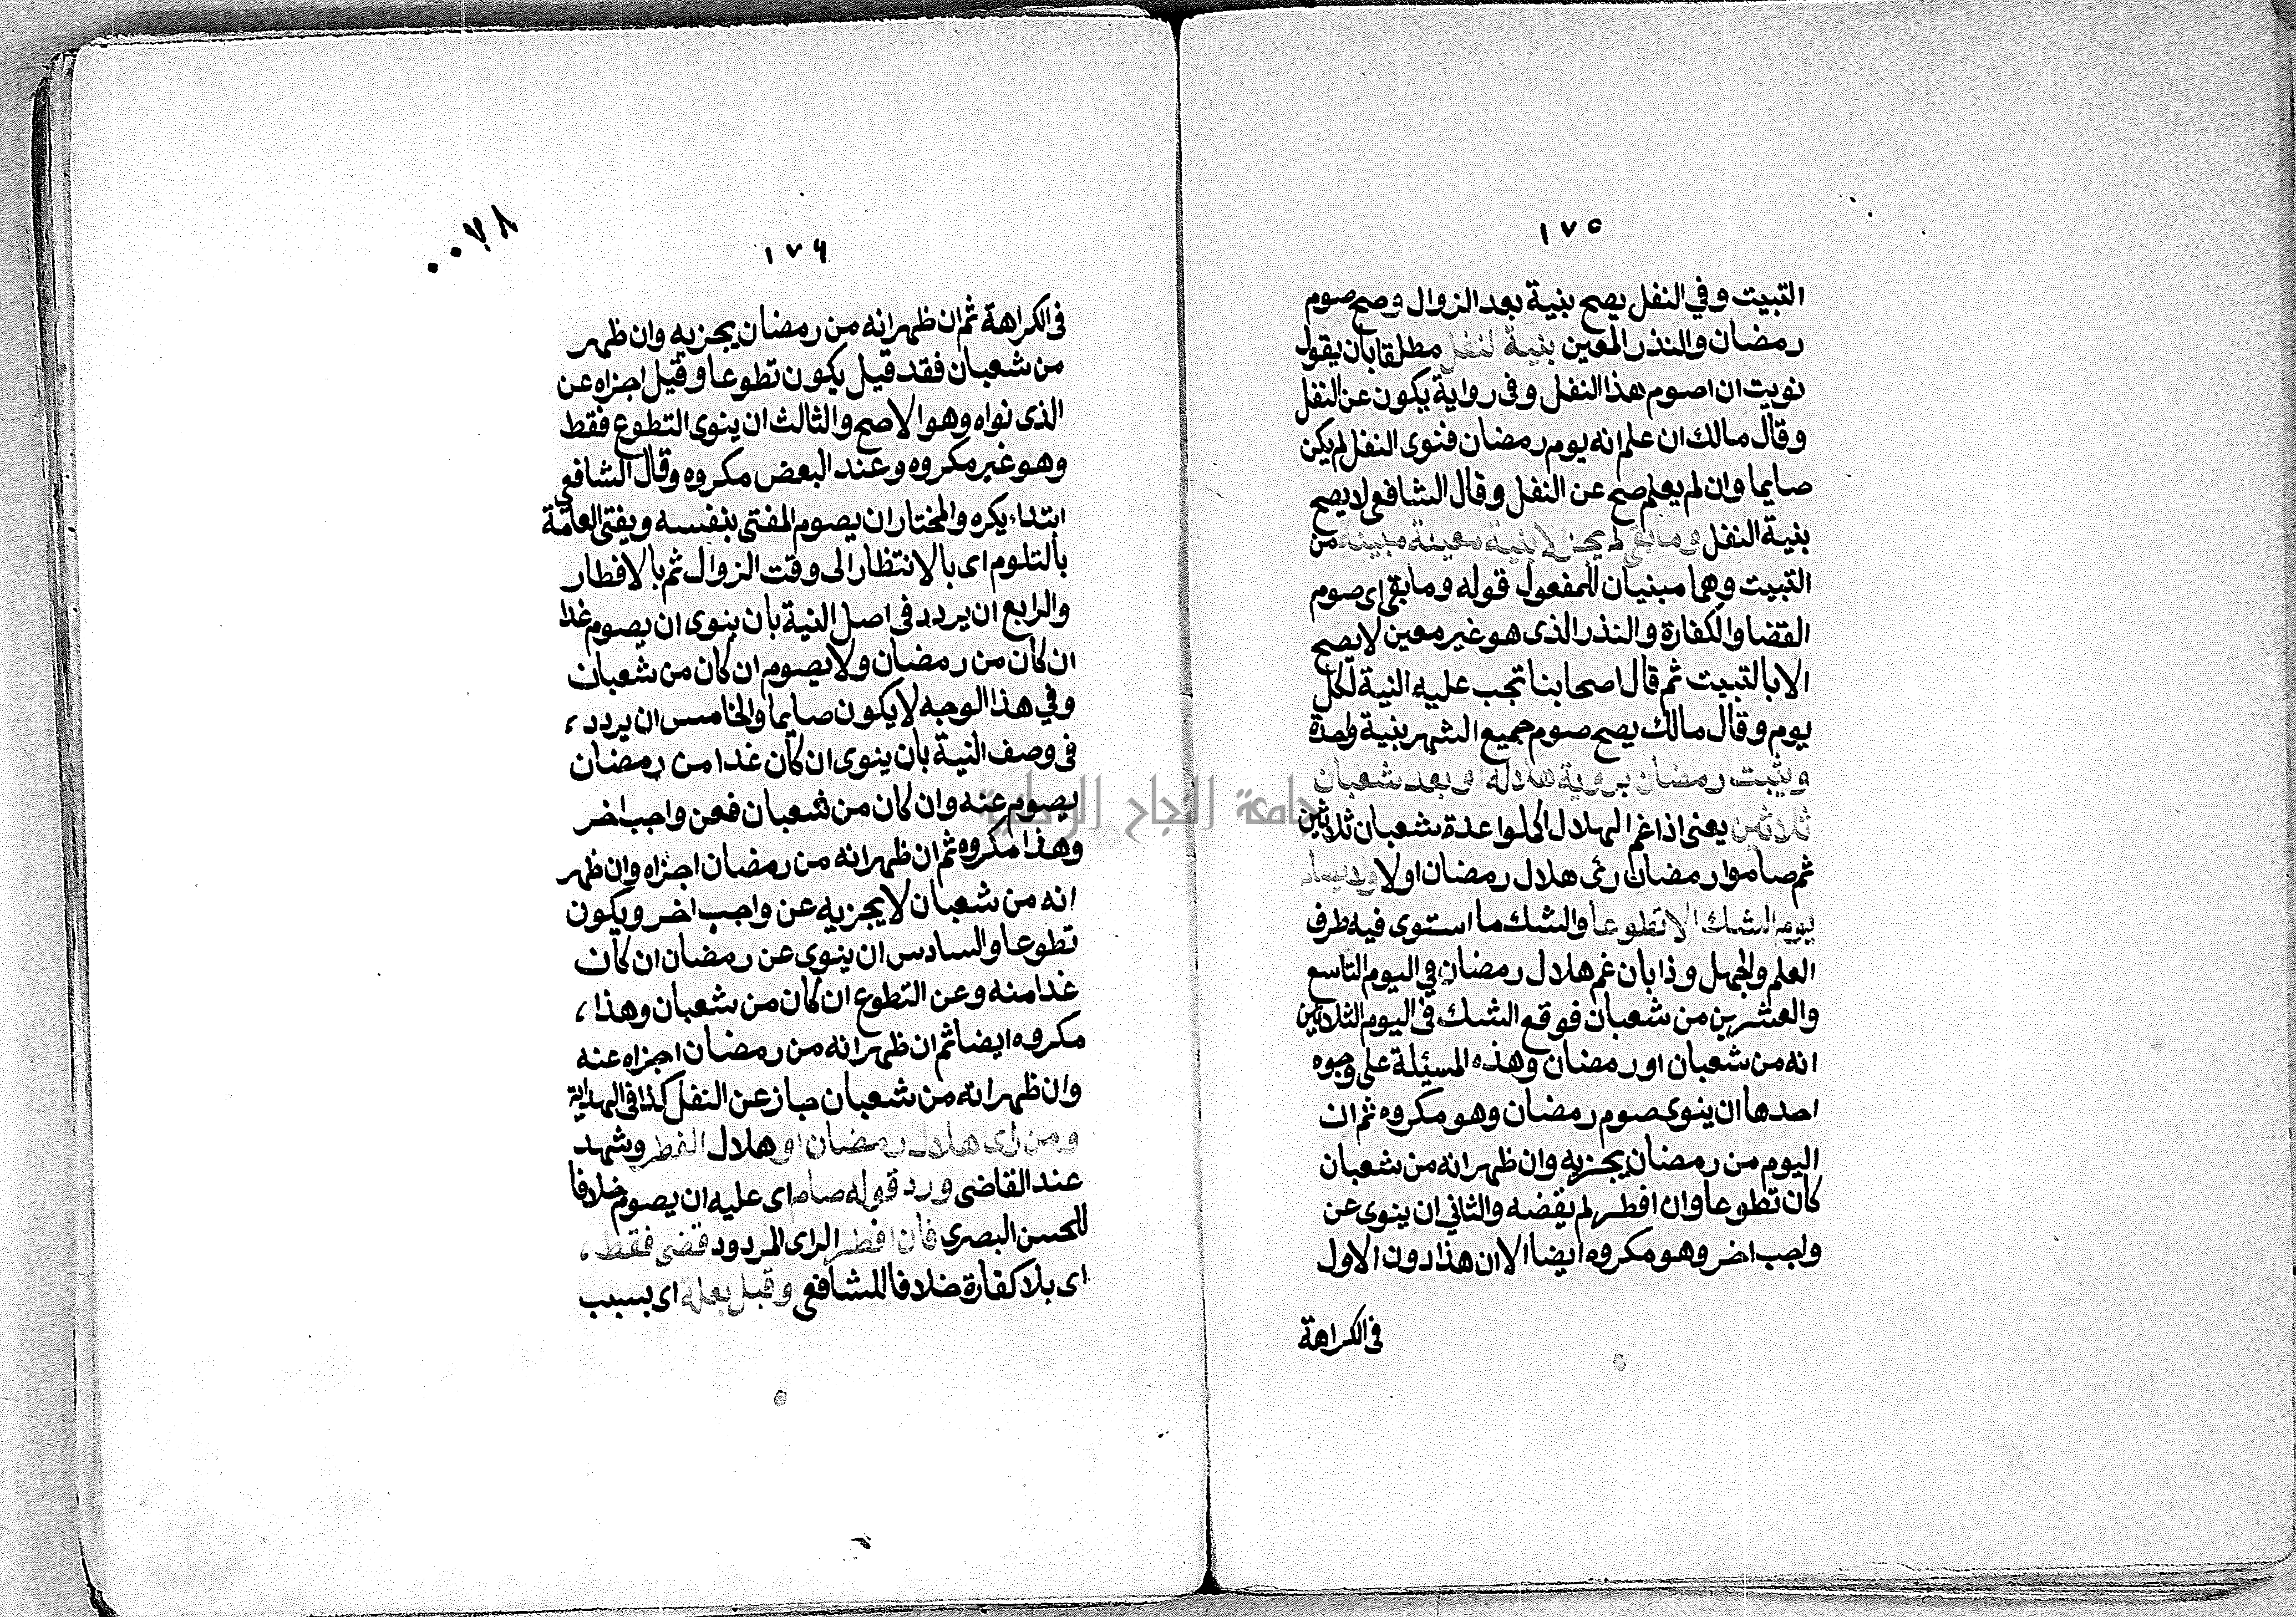 ١٧٥
التبيت وفي النفل يصح بنية بعد الزوال وصح صوم
رمضان والنذر المعين بنية لنفل مطلقا بان يقول
نويت ان اصوم هذا النفل وفى رواية يكون عن النفل
وقال مالك ان علم انه يوم رمضان فنوى النفل لم يكن
صايما وان لم يعلم صح عن النفل وقال الشافعى لا يصح
بنية النفل وما بقى لم يجز الا بنية معينة مبينة من
التبيت وهما مبنيان للمفعول قوله وما بقى اى صوم
القضا والكفارة والنذر الذى هو غير معين لا يصح
الا بالتبيت ثم قال اصحابنا تجب عليه النية لكل
يوم وقال مالك يصح صوم جميع الشهر بنية واحدة
ويثبت رمضان بروية هلاله او بعد شعبان
ثلاثين يعنى اذا غم الهلال اكملوا عدة شعبان ثلاثين
ثم صاموا رمضان رئى هلال رمضان اولا ولا يصام
يوم الشك الا تطوعا والشك ما استوى فيه طرف
العلم والجهل وذا بان غم هلال رمضان في اليوم التاسع
والعشرين من شعبان فوقع الشك فى اليوم الثلاثين
انه من شعبان او رمضان وهذه المسئلة على وجوه
احدها ان ينوى صوم رمضان وهو مكروه ثم ان
اليوم من رمضان يجزيه وان ظهر انه من شعبان
كان تطوعا وان افطر لم يقضه والثاني ان ينوى عن
واجب اخر وهو مكروه ايضا الا ان هذا دون الاول
فى الكراهة
٠٠٧٨
١٧٦
فى الكراهة ثم ان ظهر انه من رمضان يجزيه وان ظهر
من شعبان فقد قيل يكون تطوعا وقيل اجزاه عن
الذى نواه وهو الاصح والثالث ان ينوى التطوع فقط
وهو غير مكروه وعند البعض مكروه وقال الشافعي
ابتداء يكره والمختار ان يصوم المفتى بنفسه ويفتى العامة
بالتلوم اى بالانتظار الى وقت الزوال ثم بالافطار
والرابع ان يردد فى اصل النية بان ينوى ان يصوم غدا
ان كان من رمضان ولا يصوم ان كان من شعبان
وفي هذا الوجه لا يكون صايما والخامس ان يردد،
فى وصف النية بان ينوى ان كان غدا من رمضان
يصوم عنه وان كان من شعبان فعن واجب اخر
وهذا مكروه ثم ان ظهر انه من رمضان اجزاه وان ظهر
انه من شعبان لا يجزيه عن واجب اخر ويكون
تطوعا والسادس ان ينوى عن رمضان ان كان
غدا منه وعن التطوع ان كان من شعبان وهذا،
مكروه ايضا ثم ان ظهر انه من رمضان اجزاه عنه
وان ظهر انه من شعبان جاز عن النفل كذا فى الهداية
ومن راى هلال رمضان او هلال الفطر وشهد
عند القاضى ورد قوله صام اى عليه ان يصوم خلافا
للحسن البصري فان افطر الراى المردود قضى فقط،
اى بلا كفارة خلافا للشافعي وقبل بعلة اى بسبب
جامعة النجاح الوطنية